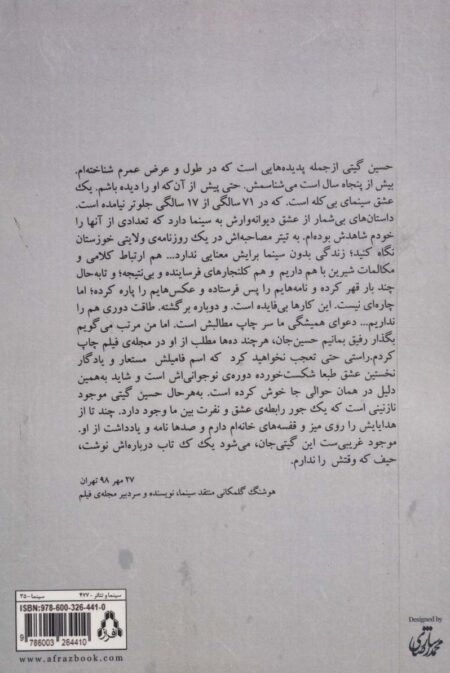 حسین گیتی ازجمله پدیده‌هایی است که در طول و عرض عمرم شناخته‌ام.
بیش از پنجاه سال است می‌شناسمش. حتی پیش از آن‌که او را دیده باشم. یک
عشق سینمای بی‌کله است. که در ۷۱ سالگی از ۱۷ سالگی جلوتر نیامده است.
داستان‌های بی‌شمار از عشق دیوانه‌وارش به سینما دارد که تعدادی از آنها را
خودم شاهدش بوده‌ام. به تیتر مصاحبه‌اش در یک روزنامه‌ی ولایتی خوزستان
نگاه کنید؛ زندگی بدون سینما برایش معنایی ندارد... هم ارتباط کلامی و
مکالمات شیرین با هم داریم و هم کلنجارهای فرساینده و بی‌نتیجه؛ و تابه‌حال
چند بار قهر کرده و نامه‌هایم را پس فرستاده و عکس‌هایم را پاره کرده؛ اما
چاره‌ای نیست. این کارها بی‌فایده است. و دوباره برگشته. طاقت دوری هم را
نداریم... دعوای همیشگی ما سر چاپ مطالبش است. اما من مرتب می‌گویم
بگذار رفیق بمانیم حسین‌جان، هرچند ده‌ها مطلب از او در مجله‌ی فیلم چاپ
کردم.راستی حتی تعجب نخواهید کرد که اسم فامیلش مستعار و یادگار
نخستین عشق طبعا شکست‌خورده دوره‌ی نوجوانی‌اش است و شاید به‌همین
دلیل در همان حوالی جا خوش کرده است. به‌هرحال حسین گیتی موجود
نازنینی است که یک جور رابطه‌ی عشق و نفرت بین ما وجود دارد. چند تا از
هدایایش را روی میز و قفسه‌های خانه‌ام دارم و صدها نامه و یادداشت از او.
موجود غریبی‌ست این گیتی‌جان، می‌شود یک ک تاب درباره‌اش نوشت،
حیف که وقتش را ندارم.
۲۷ مهر ۹۸ تهران
هوشنگ گلمکانی منتقد سینما، نویسنده و سردبیر مجله‌ی فیلم
سینما و تئاتر - ۴۷۷ سینما - ۳۵۰
ISBN:978-600-326-441-0
افراز
9 786003 264410
www.afrazbook.com
Designed by